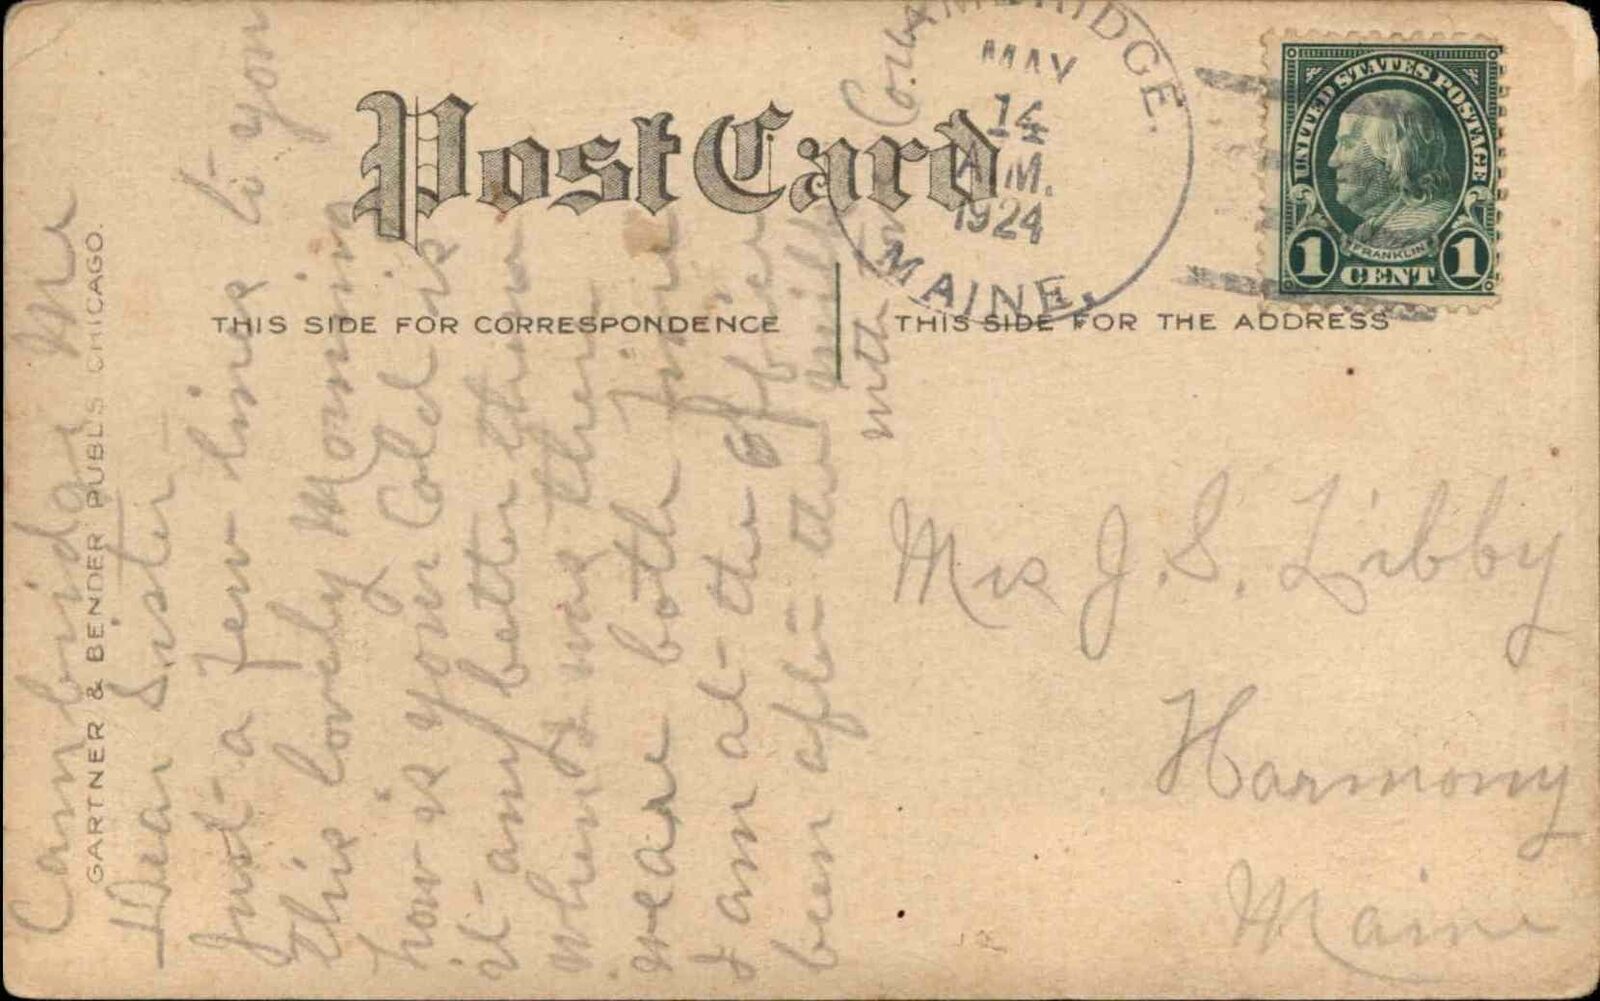 Post Card
CAMBRIDGE.
MAY
14
A.M.
1924
MAINE.
UNITED STATES POSTAGE
FRANKLIN
1 CENT 1
THIS SIDE FOR CORRESPONDENCE
THIS SIDE FOR THE ADDRESS
GARTNER & BENDER PUBL'S CHICAGO.
Cambridge Me
Dear Sister
Just a few lines to you
this lovely Morning
how is your Cold is
it any better than
when I was there
we are both fine
I am at the office
been after the milk
with the
Mrs J. S. Libby
Harmony
Maine